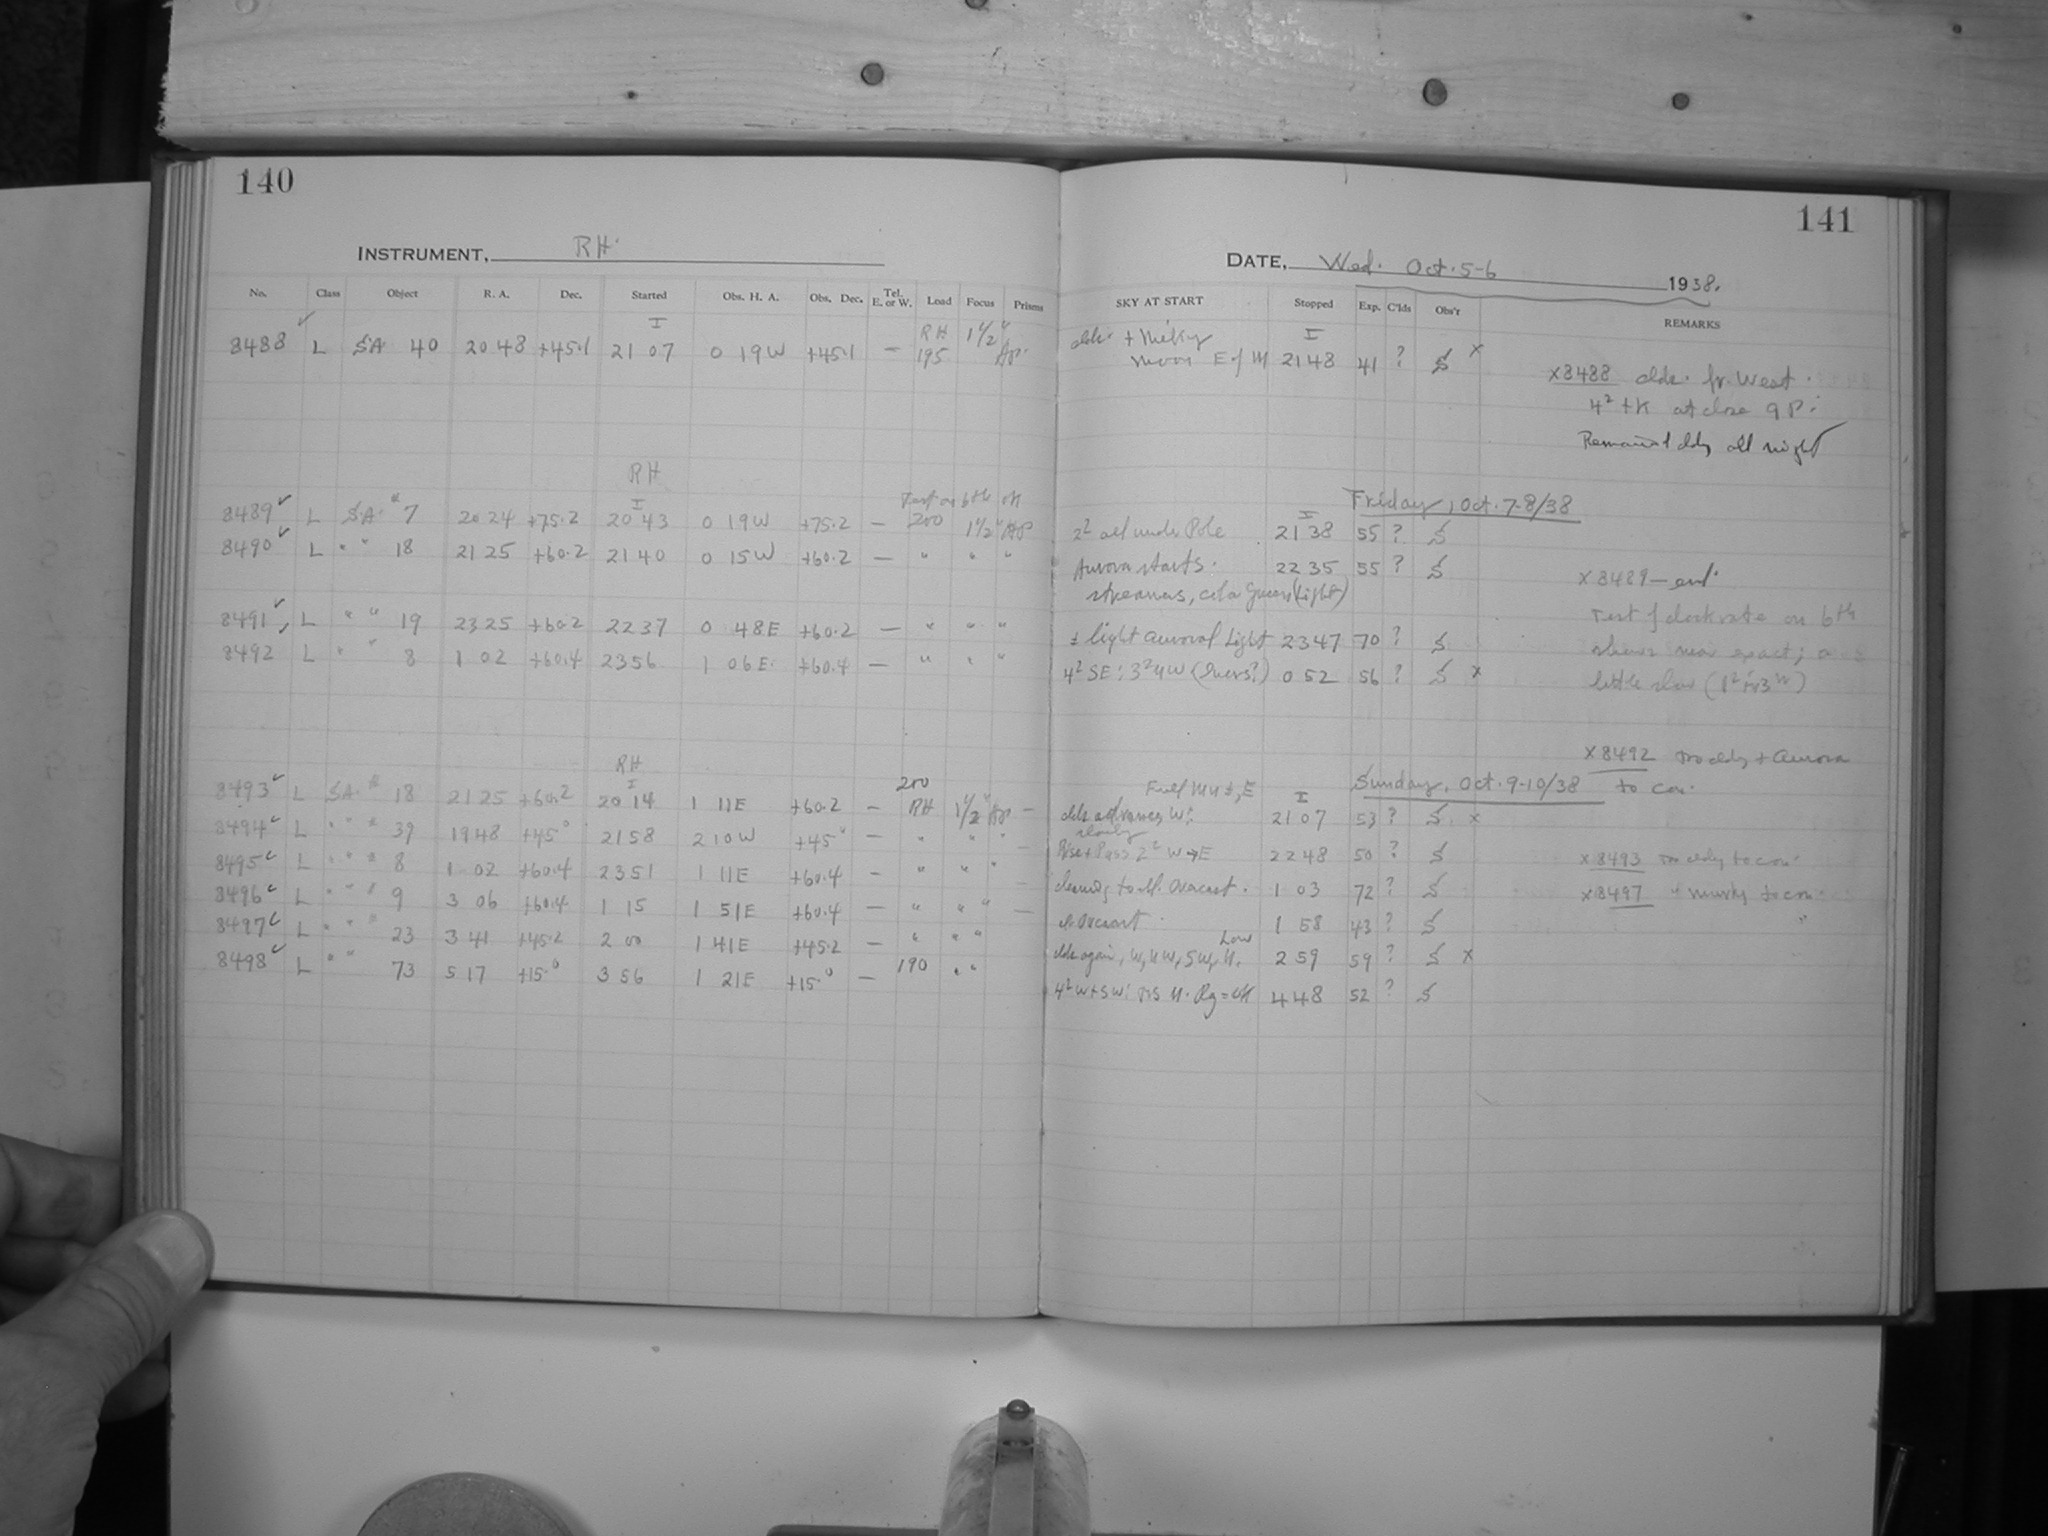 140
INSTRUMENT, RH
No. Class Object R. A. Dec. Started Obs. H. A. Obs. Dec. Tel. E. or W. Load Focus Prisms
8488 ✓ L SA 40 20 48 +45.1 I 21 07 0 19W +45.1 — RH 195 1 1/2" Ap.
RH
I Test on 6th OK
8489 ✓ L S.A. # 7 20 24 +75.2 20 43 0 19W +75.2 — 200 1 1/2" Ap
8490 ✓ L " " 18 21 25 +60.2 21 40 0 15W +60.2 — " " "
8491 ✓ L " " 19 23 25 +60.2 22 37 0 48E +60.2 — " " "
8492 L " " 8 1 02 +60.4 23 56 1 06E. +60.4 — " " "
RH
I 200
8493 ✓ L SA # 18 21 25 +60.2 20 14 1 11E +60.2 — RH 1 1/2" Ap —
8494 ✓ L " " " 39 19 48 +45° 21 58 2 10W +45° — " " " —
8495 ✓ L " " " 8 1 02 +60.4 23 51 1 11E +60.4 — " " "
8496 ✓ L " " " 9 3 06 +60.4 1 15 1 51E +60.4 — " " " —
8497 ✓ L " " " 23 3 41 +45.2 2 00 1 41E +45.2 — " " "
8498 ✓ L " " 73 5 17 +15.° 3 56 1 21E +15° — 190 " "
141
DATE, Wed. Oct. 5-6 1938.
SKY AT START Stopped Exp. C'lds Obs'r REMARKS
clds. + Milky
Moon E of M I 21 48 41 ? S x
x8488 clds. fr. West.
4² + K at close 9 P.
Remained cldy all night
Friday, Oct. 7-8/38
2² all under Pole I 21 38 55 ? S
Aurora starts. 22 35 55 ? S
streamers, color Green (Light)
x8489—
Test of clock rate on 6th
shows near exact; a
little slow (1² in 3 )
± light auroral Light 23 47 70 ? S
4² SE; 3² NW ( ?) 0 52 56 ? S x
x8492 cldy + Aurora
to con.
Sunday, Oct. 9-10/38
Full , E
clds advances W. I 21 07 53 ? S. x
slowly
Pass 2² W→E 22 48 50 ? S
x8493 cldy to con.
clearing Overcast. 1 03 72 ? S
x8497 " murky to con.
Overcast 1 58 43 ? S "
Low
clds again, W, NW, SW, N. 2 59 59 ? S x
4² W + SW; N. = OK 4 48 52 ? S